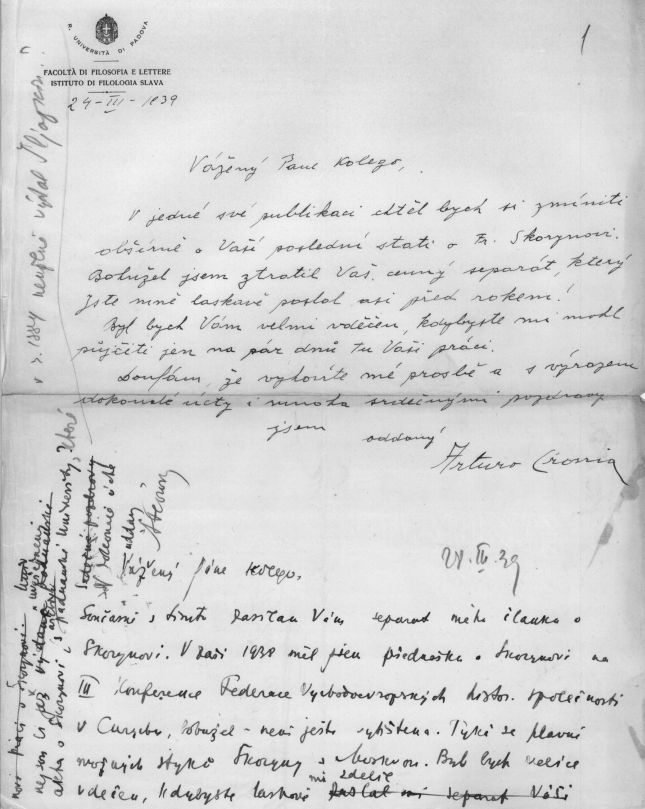 R. UNIVERSITÀ DI PADOVA
1
FACOLTÀ DI FILOSOFIA E LETTERE
ISTITUTO DI FILOLOGIA SLAVA
24-III-1939
Vážený Pane kolego,
V jedné své publikaci chtěl bych si zmíniti
obšírně o Vaší poslední stati o Fr. Skorynovi.
Bohužel jsem ztratil Váš cenný separát, který
jste mně laskavě poslal asi před rokem!
Byl bych Vám velmi vděčen, kdybyste mi mohl
půjčiti jen na pár dnů tu Vaši práci.
Doufám, že vyhovíte mé prosbě a s výrazem
dokonalé úcty i mnoha srdečnými pozdravy
jsem oddaný
Arturo Cronia
28.IV.39
Vážený Pane kolego,
Současně s tímto zasílám Vám separát mého článku o
Skorynovi. V září 1938 měl jsem přednášku o Skorynovi na
III Konference Federace Východoevropských histor. společností
v Curychu, bohužel - není ještě vytištěna. Týká se hlavně
možných styků Skoryny s Moskvou. Byl bych velice
vděčen, kdybyste laskavě
mi sdělil
poslal mi separát Vaší
nové práci o Skorynovi.
akta o Skorynovi z Padovanské University, které
v r. 1884 neúplně vydal